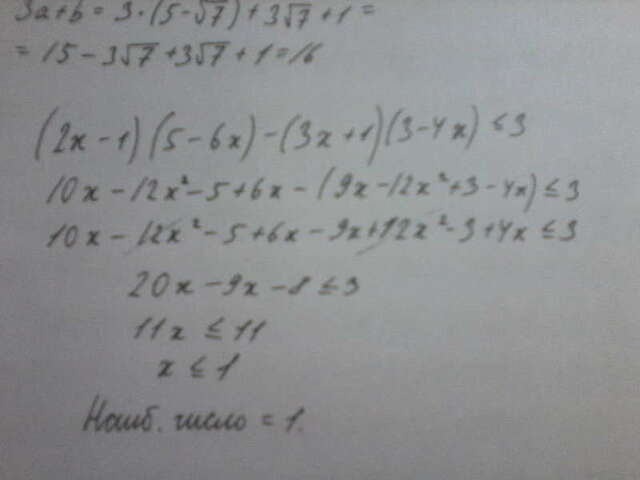 3a+b = 3·(5-√7)+3√7+1=
= 15-3√7+3√7+1=16
(2x-1)(5-6x)-(3x+1)(3-4x)≤3
10x-12x²-5+6x-(9x-12x²+3-4x)≤3
10x-12x²-5+6x-9x+12x²-3+4x≤3
20x-9x-8≤3
11x≤11
x≤1
Наиб. число = 1.